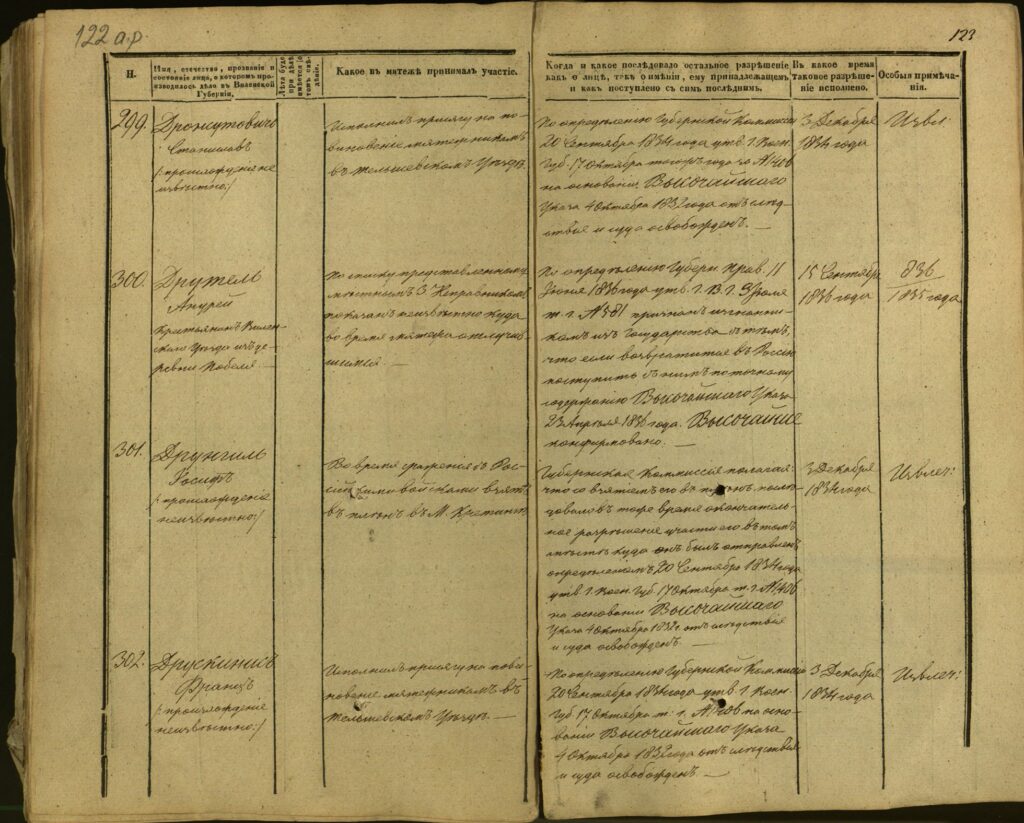 122 а.р.
123
Н.
Имя, отечество, прозваніе и
состояніе лица, о которомъ про-
изводилось дѣло въ Виленской
Губерніи.
Какое въ мятежѣ принималъ участіе.
Когда и какое послѣдовало остальное разрѣшеніе
какъ о лицѣ, такъ о имѣніи, ему принадлежащемъ
и какъ поступлено съ симъ послѣднимъ.
Въ какое время
таковое разрѣше-
ніе исполнено.
Особыя примѣча-
нія.
299.
Станиславъ
(:происхожденіе не
извѣстно:)
Исполнилъ присягу на по-
виновеніе мятежникамъ
въ Тельшевскомъ Уѣздѣ.
По опредѣленію Губернской Коммисіи
20 Сентября 1834 года утв. г. Воен.
Губ. 17 Октября того жъ года за № 1406
на основаніи Высочайшаго
Указа 4 Октября 1832 года отъ слѣд-
ствія и суда освобожденъ. —
3 Декабря
1834 года
Извл:
300.
Друтель
Андрей
Крестьянинъ Вилен-
скаго Уѣзда изъ де-
ревни
По списку представленному
мѣстнымъ З. Исправникомъ
показанъ неизвѣстно куда
во время мятежа отлучив-
шимся. —
По опредѣленію Губерн. Прав. 11
Іюня 1836 года утв. г. В. Г. 9 Іюля
т. г. № 581 признанъ изгнанни-
комъ изъ Государства съ тѣмъ,
что если возвратится въ Россію
поступить съ нимъ по точному
содержанію Высочайшаго Указа
23 Апрѣля 1836 года. Высочайше
конфирмовано. —
15 Сентября
1836 года
836
1835 года
301.
Друнгиль
Іосифъ
(:происхожденіе
неизвѣстно:)
Во время сраженія съ Рос-
сійскими войсками взятъ
въ плѣнъ въ М. Кретингѣ
Губернская Коммисія полагая:
что со взятіемъ его въ плѣнъ послѣ-
довало въ тоже время окончатель-
ное разрѣшеніе участи его въ томъ
мѣстѣ куда онъ былъ отправленъ
опредѣленіемъ 20 Сентября 1834 года
утв. г. Воен. Губ. 17 Октября т. г. № 1406
на основаніи Высочайшаго
Указа 4 Октября 1832 г. отъ слѣдствія
и суда освобожденъ. —
3 Декабря
1834 года
Извлеч:
302.
Францъ
(:происхожденіе
неизвѣстно:)
Исполнилъ присягу на пови-
новеніе мятежникамъ въ
Тельшевскомъ Уѣздѣ. —
По опредѣленію Губернской Коммисіи
20 Сентября 1834 года утв. г. Воен.
Губ. 17 Октября т. г. № 1406 на осно-
ваніи Высочайшаго Указа
4 Октября 1832 года отъ слѣдствія
и суда освобожденъ. —
3 Декабря
1834 года
Извлеч: